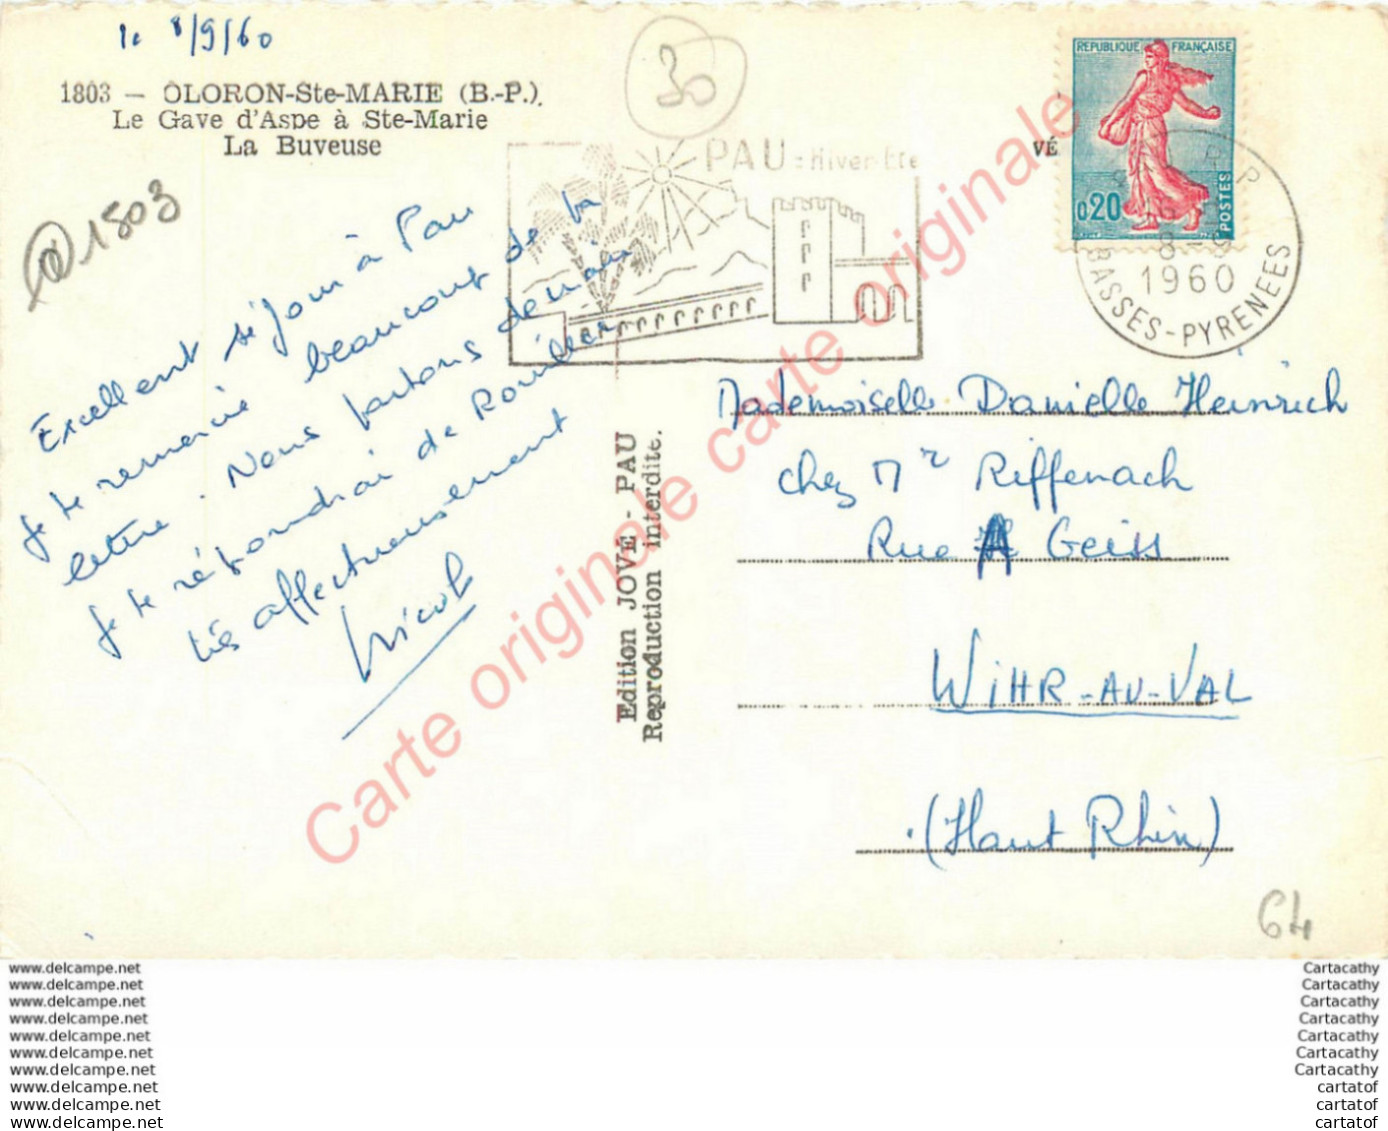 le 8/9/60
1803 — OLORON-Ste-MARIE (B.-P.)
Le Gave d'Aspe à Ste-Marie
La Buveuse
30
1803
PAU : Hiver Eté
VÉ
REPUBLIQUE FRANÇAISE
0,20
POSTES
PAU R.P
8-9
1960
BASSES-PYRENEES
Excellent séjour à Pau
Je te remercie beaucoup de ta
lettre. Nous partons demain
Je te répondrai de
très affectueusement
Nicole
Edition JOVÉ - PAU
Reproduction interdite.
Mademoiselle Danielle Heinrich
chez Mr Riffenach
Rue A Geiss
WIHR-AU-VAL
(Haut Rhin)
64
Carte originale carte originale
www.delcampe.net
www.delcampe.net
www.delcampe.net
www.delcampe.net
www.delcampe.net
www.delcampe.net
www.delcampe.net
www.delcampe.net
www.delcampe.net
www.delcampe.net
Cartacathy
Cartacathy
Cartacathy
Cartacathy
Cartacathy
Cartacathy
Cartacathy
cartatof
cartatof
cartatof